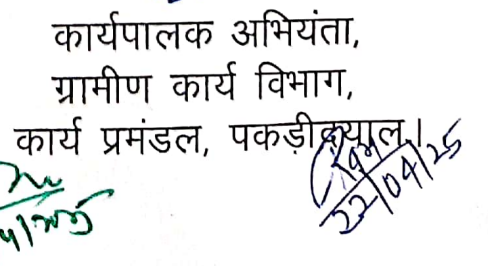 कार्यपालक अभियंता,
ग्रामीण कार्य विभाग,
कार्य प्रमंडल, पकड़ीदयाल।
22/04/25